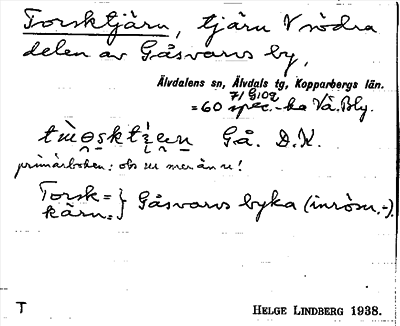 Torsktjärn, tjärn V södra
delen av Gåsvarvs by,
Älvdalens sn, Älvdals tg, Kopparbergs län.
71 G10g
=60 spec.-ka Vä. Bly.
Gå. D.K.
primärboden: obs mer än u!
Torsk= } Gåsvarvs byka (inrösn.-).
kärn=
T
HELGE LINDBERG 1938.